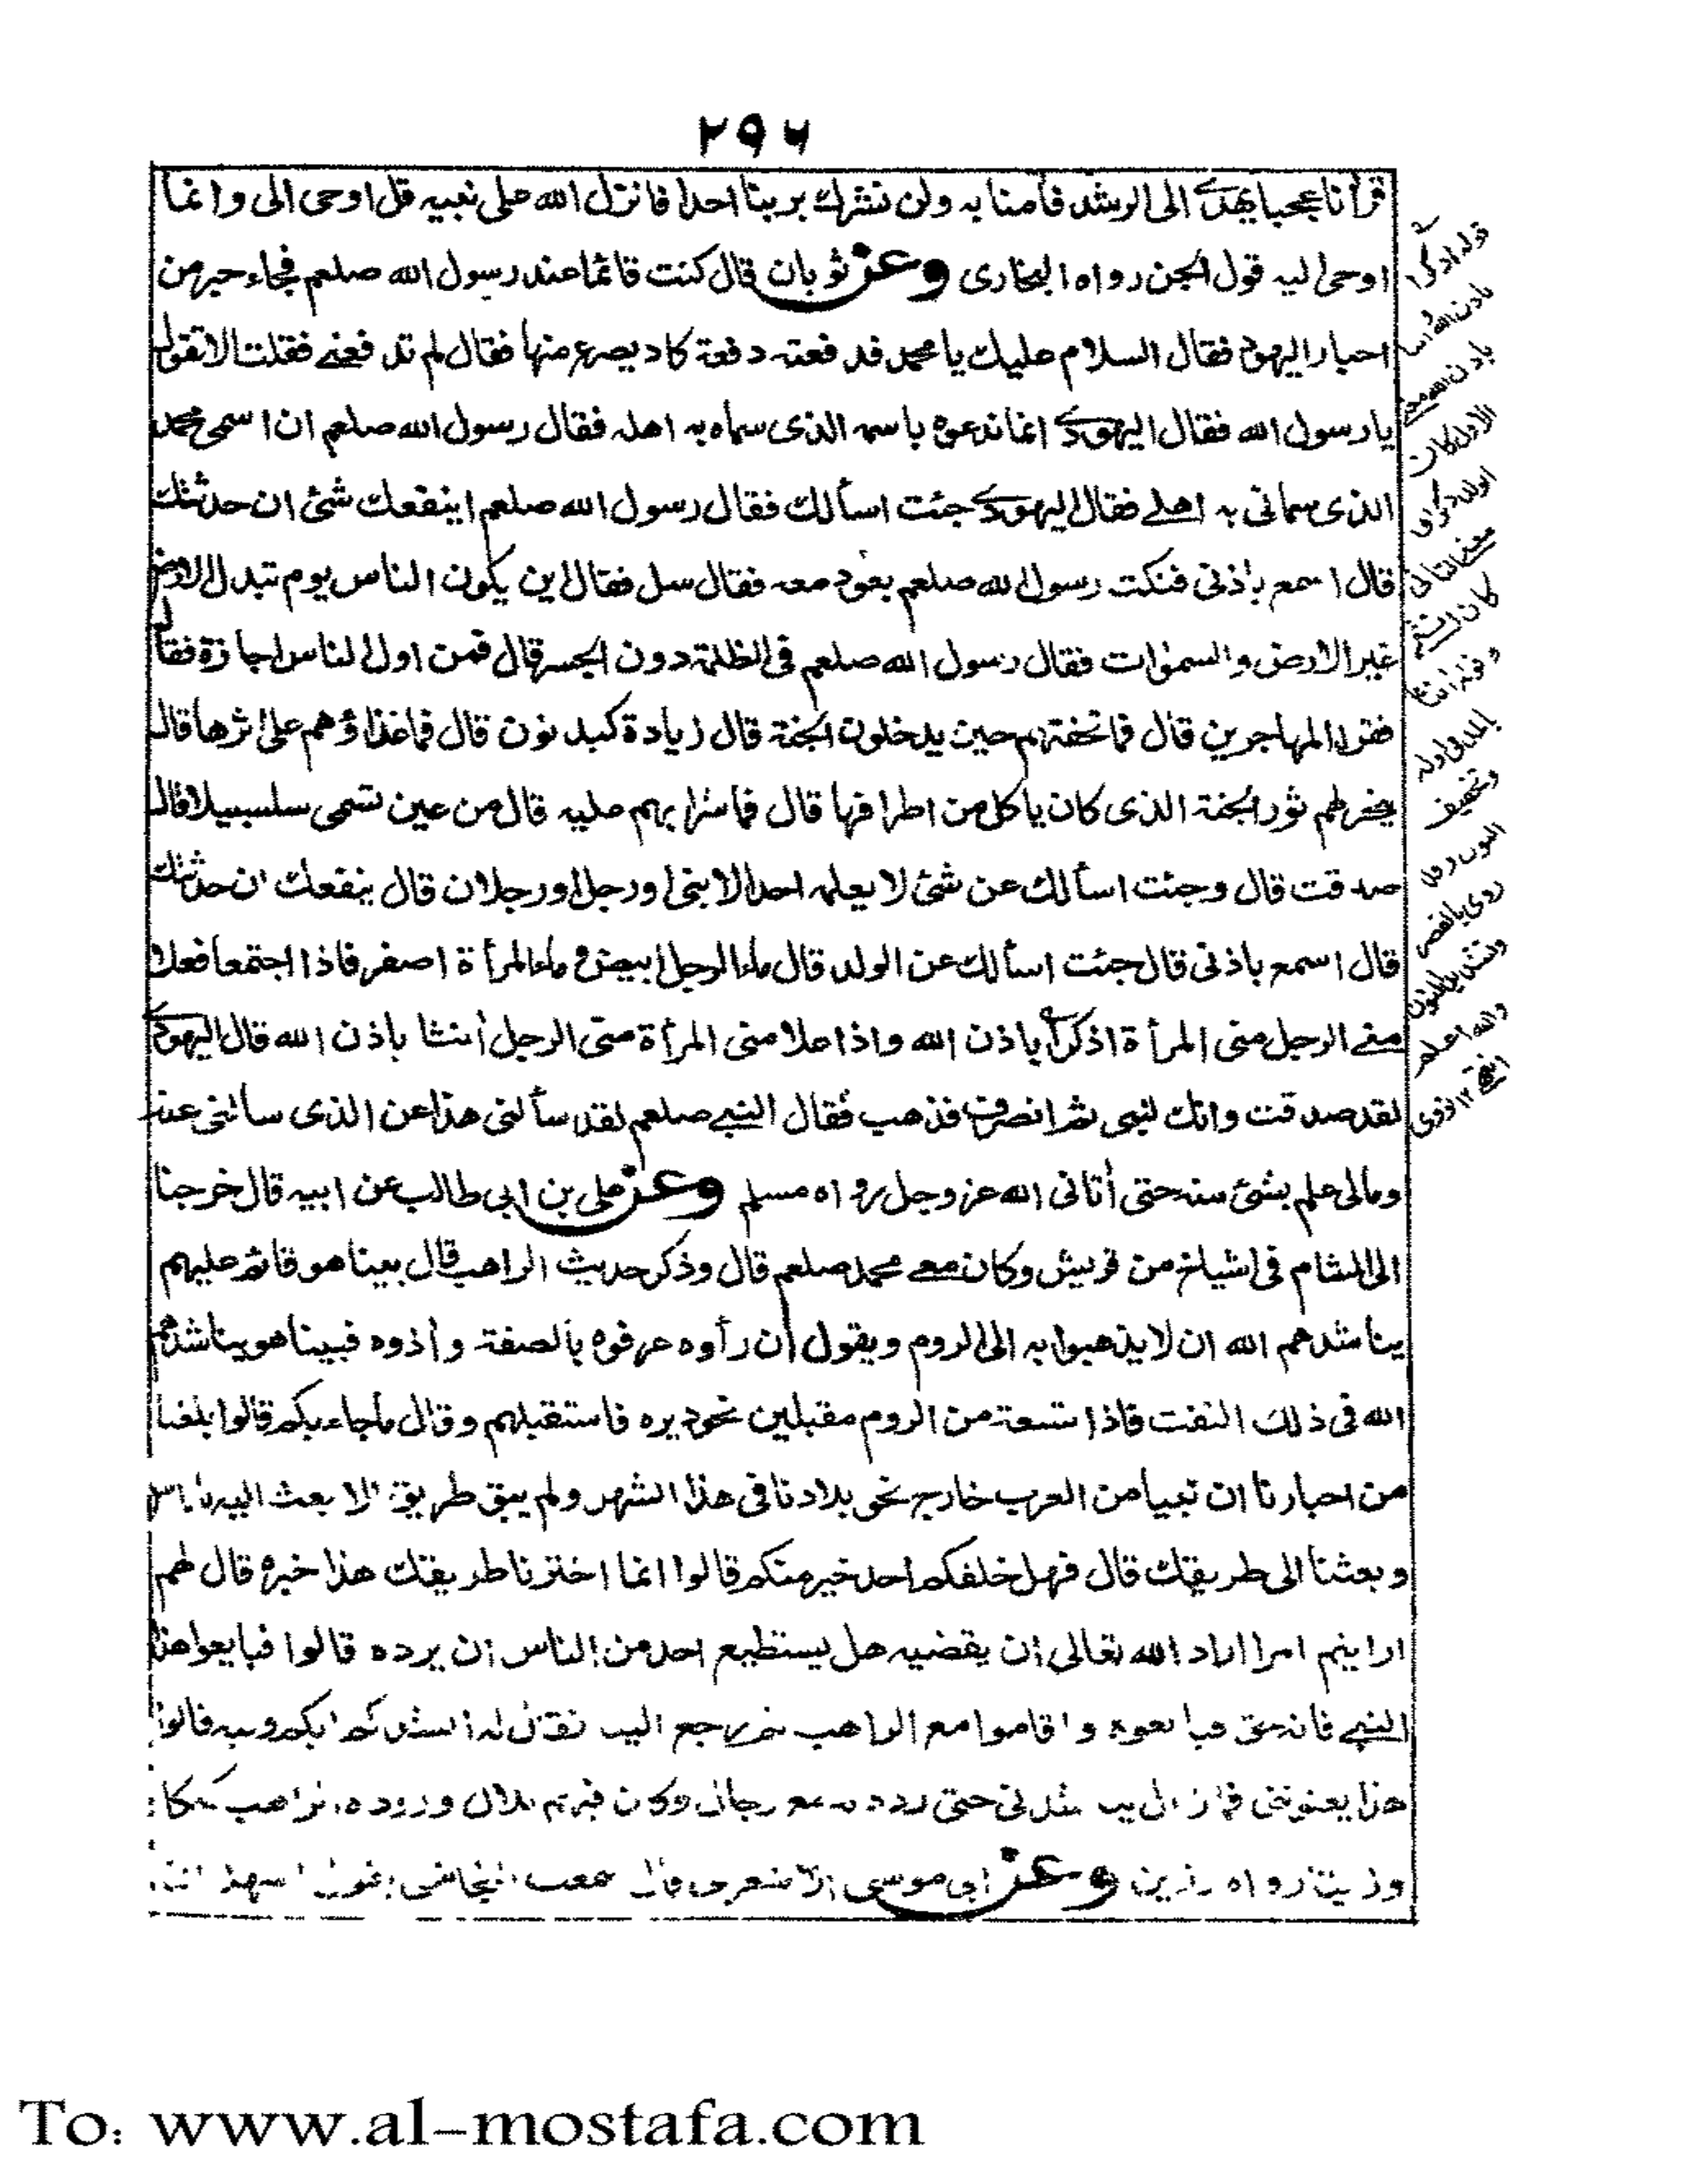 ٢٩٦
قرأنا عجبا يهدى الى الرشد فأمنا به ولن نشرك بربنا احدا فانزل الله على نبيه قل اوحى الى وانما
اوحى اليه قول الجن رواه البخارى وعن ثوبان قال كنت قائما عند رسول الله صلعم فجاء حبر من
احبار اليهود فقال السلام عليك يا محمد فدفعته دفعة كاد يصرع منها فقال لم تدفعنى فقلت الا تقول
يا رسول الله فقال اليهودى انما ندعوه باسمه الذى سماه به اهله فقال رسول الله صلعم ان اسمى محمد
الذى سمانى به اهلى فقال اليهودى جئت اسألك فقال رسول الله صلعم اينفعك شئ ان حدثتك
قال اسمع باذنى فنكت رسول الله صلعم بعود معه فقال سل فقال اين يكون الناس يوم تبدل الارض
غير الارض والسموات فقال رسول الله صلعم فى الظلمة دون الجسر قال فمن اول الناس اجازة فقال
فقراء المهاجرين قال فما تحفتهم حين يدخلون الجنة قال زيادة كبد نون قال فما غذاؤهم على اثرها قال
ينحر لهم ثور الجنة الذى كان ياكل من اطرافها قال فما شرابهم عليه قال من عين تسمى سلسبيلا قال
صدقت قال وجئت اسألك عن شئ لا يعلمه احد الا نبى او رجل او رجلان قال ينفعك ان حدثتك
قال اسمع باذنى قال جئت اسألك عن الولد قال ماء الرجل ابيض و ماء المرأة اصفر فاذا اجتمعا فعلا
منى الرجل منى المرأة اذكرا باذن الله واذا علا منى المرأة منى الرجل أنثا باذن الله قال اليهودى
لقد صدقت وانك لنبى ثم انصرف فذهب فقال النبى صلعم لقد سألنى هذا عن الذى سالنى عنه
ومالى علم بشئ منه حتى أتانى الله عز وجل رواه مسلم وعن على بن ابى طالب عن ابيه قال خرجنا
الى الشام فى اشياخ من قريش وكان معى محمد صلعم قال وذكر حديث الراهب قال بينا هو قائم عليهم
يناشدهم الله ان لا يذهبوا به الى الروم ويقول إن رأوه عرفوه بالصفة وأذوه فبينا هو يناشدهم
الله فى ذلك التفت فاذا تسعة من الروم مقبلين نحو ديره فاستقبلهم وقال ما جاء بكم قالوا بلغنا
من احبارنا ان نبيا من العرب خارج نحو بلادنا فى هذا الشهر ولم يبق طريق الا بعث اليه ناس
وبعثنا الى طريقك قال فهل خلفكم احد خير منكم قالوا انما اخترنا طريقك هذا خيره قال لهم
ارايتم امرا اراد الله تعالى ان يقضيه هل يستطيع احد من الناس ان يرده قالوا فبايعوا هذا
النبى فانه حق فبايعوه واقاموا مع الراهب ثم رجع الينا فقال انشدكم ايكم وليه قالوا
هذا يعنوننى فما زال يناشدنى حتى رددته مع رجال وكان فيهم بلال وزوده الراهب كعكا
وزيتا رواه رزين وعن ابى موسى الاشعرى قال سمعت النجاشى يقول اشهد ان
قوله اذكرا
باذن الله و
باذن الله معنى
الاول كان
الولد ذكرا و
معنى الثانى
كان انثى
وقوله انثا
بالمد فى اوله
وتخفيف
النون وقد
روى بالقصر
وتشديد النون
والله اعلم
انتهى ١٢ نووى
To: www.al-mostafa.com